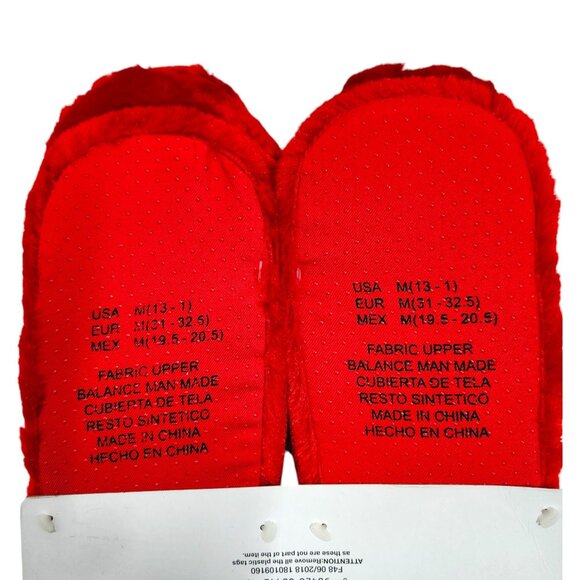 USA M(13 - 1)
EUR M(31 - 32.5)
MEX M(19.5 - 20.5)
FABRIC UPPER
BALANCE MAN MADE
CUBIERTA DE TELA
RESTO SINTETICO
MADE IN CHINA
HECHO EN CHINA
USA M(13 - 1)
EUR M(31 - 32.5)
MEX M(19.5 - 20.5)
FABRIC UPPER
BALANCE MAN MADE
CUBIERTA DE TELA
RESTO SINTETICO
MADE IN CHINA
HECHO EN CHINA
F48 06/2018 180109160
ATTENTION:Remove all the plastic tags
as these are not part of the item.